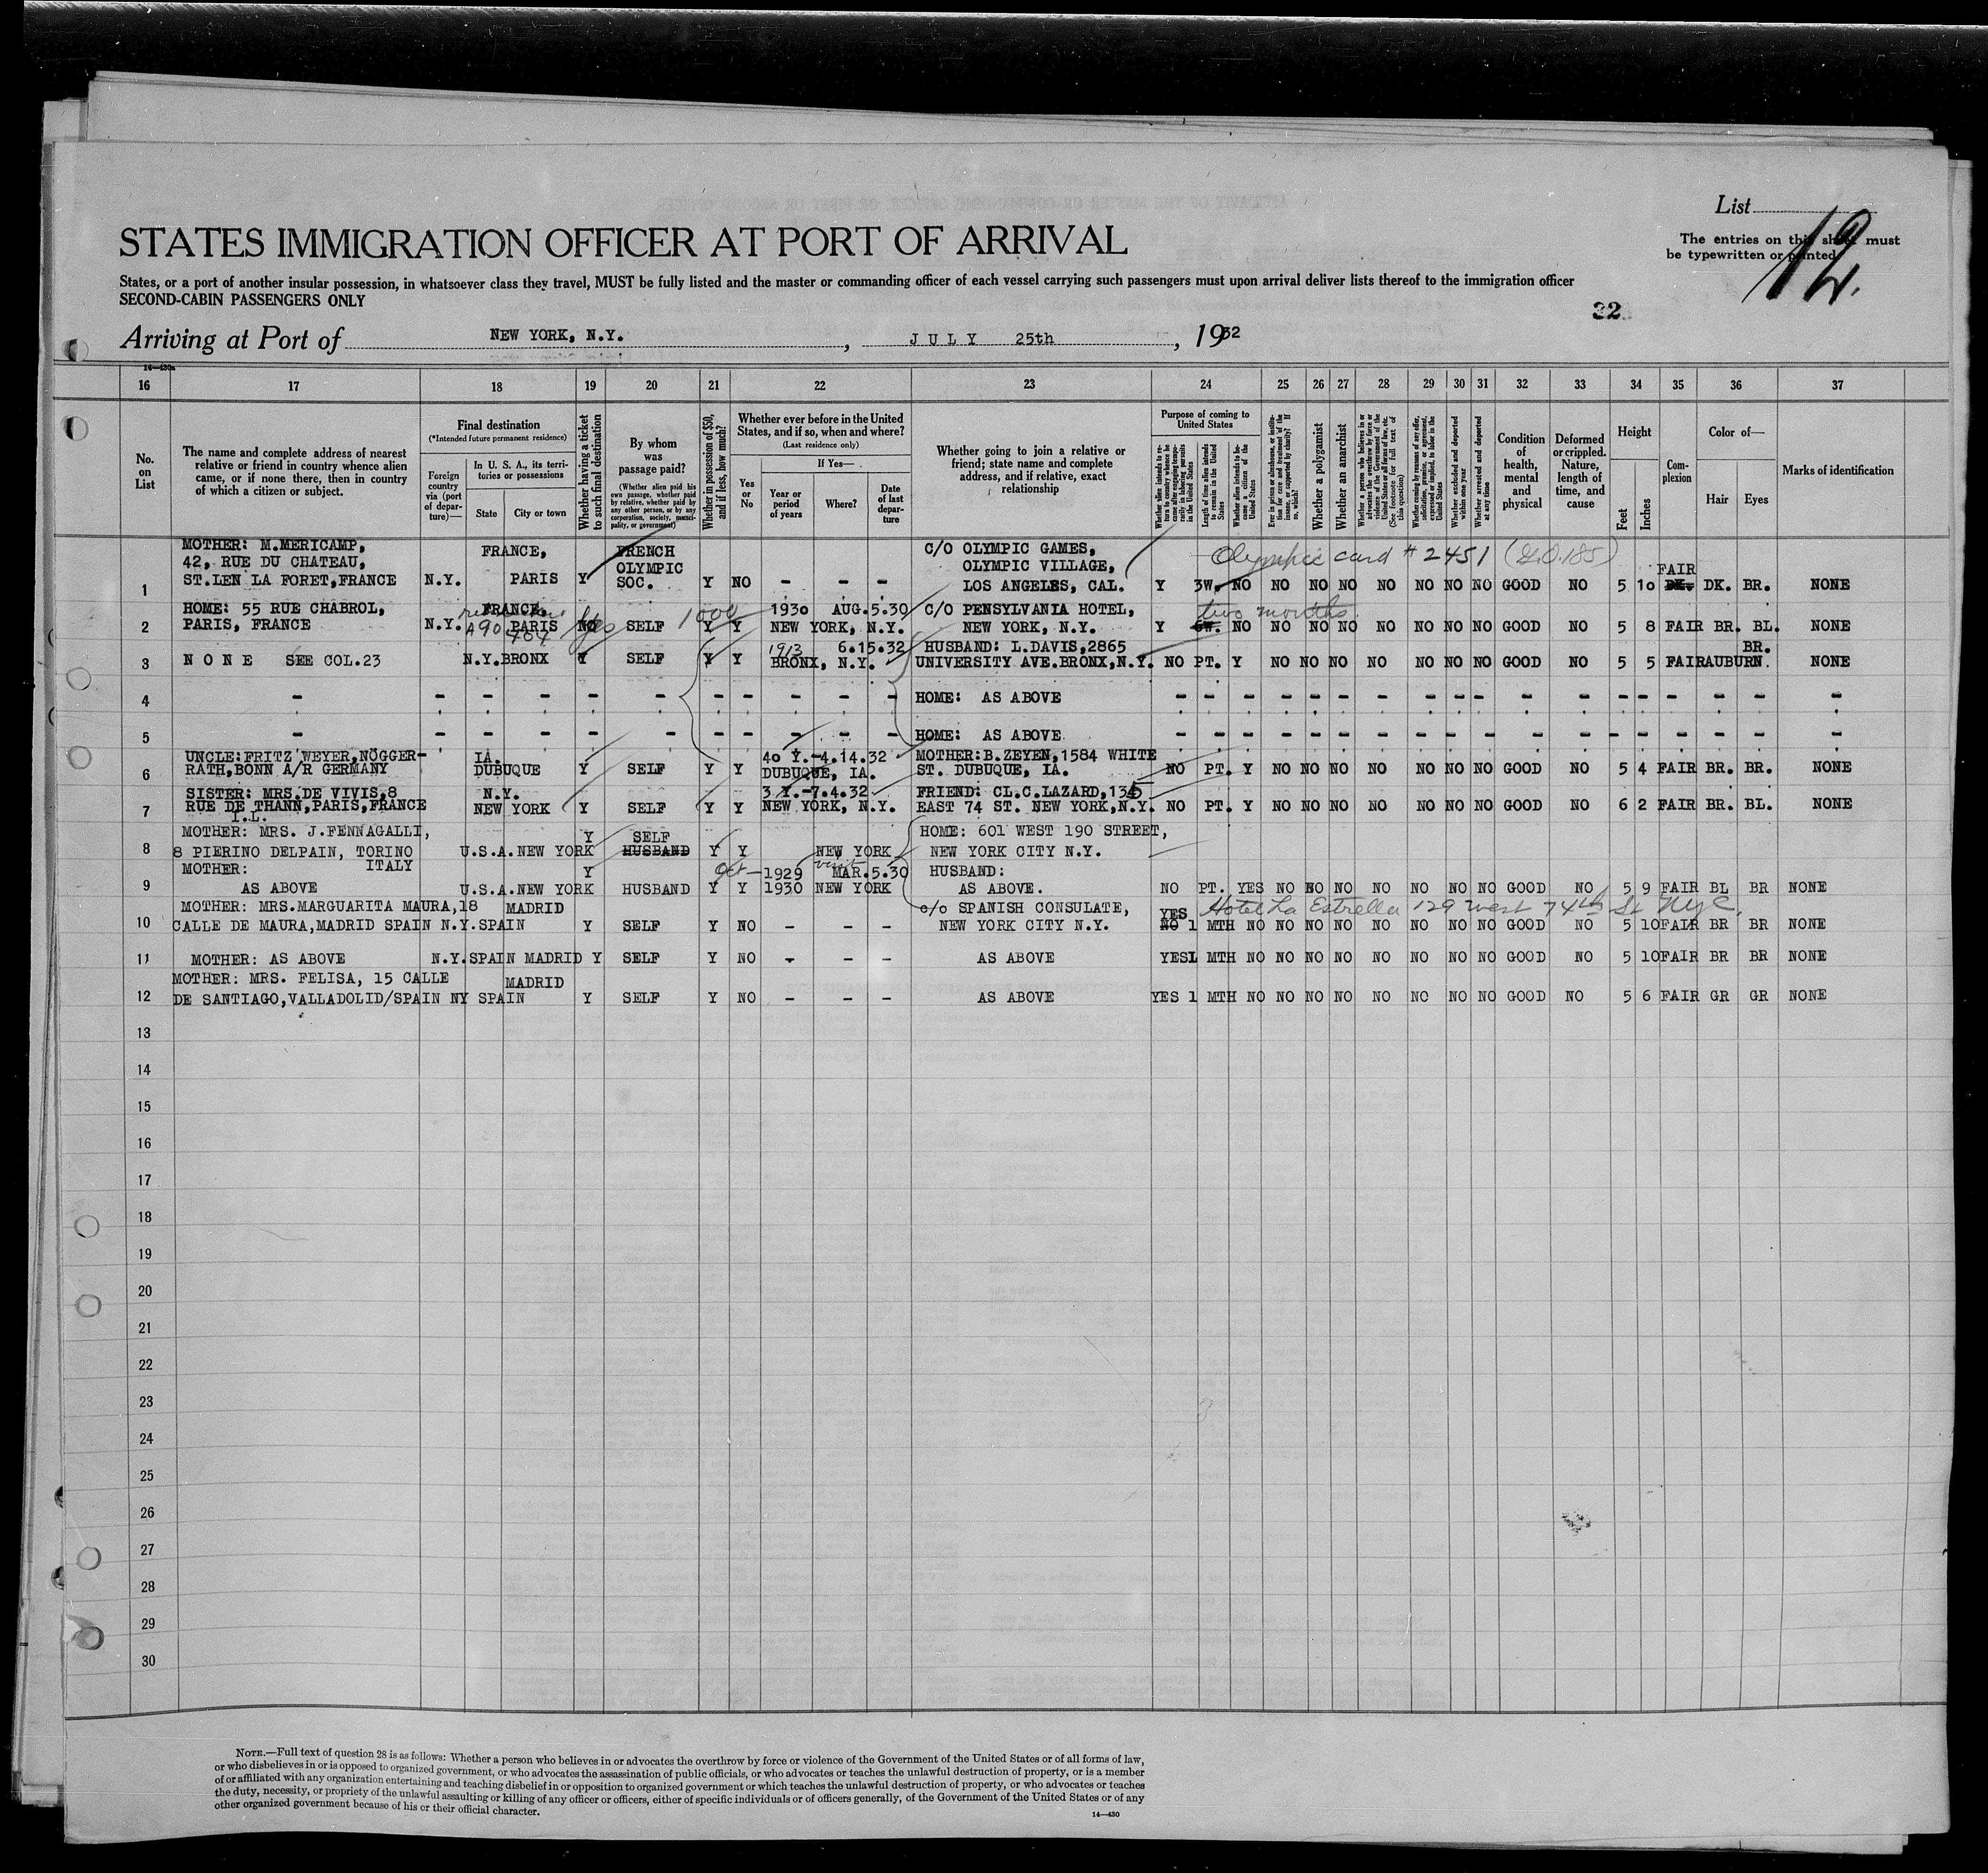 List
12.
The entries on this sheet must
be typewritten or printed
STATES IMMIGRATION OFFICER AT PORT OF ARRIVAL
States, or a port of another insular possession, in whatsoever class they travel, MUST be fully listed and the master or commanding officer of each vessel carrying such passengers must upon arrival deliver lists thereof to the immigration officer
SECOND-CABIN PASSENGERS ONLY
22
Arriving at Port of NEW YORK, N.Y., JULY 25th, 1932
14—430a
16 17 18 19 20 21 22 23 24 25 26 27 28 29 30 31 32 33 34 35 36 37
No. on List
The name and complete address of nearest
relative or friend in country whence alien
came, or if none there, then in country
of which a citizen or subject.
Final destination
(*Intended future permanent residence)
Foreign country via (port of departure)—
In U. S. A., its territories or possessions
State
City or town
Whether having a ticket to such final destination
By whom was passage paid?
(Whether alien paid his own passage, whether paid by relative, whether paid by any other person, or by any corporation, society, municipality, or government)
Whether in possession of $50, and if less, how much?
Whether ever before in the United
States, and if so, when and where?
(Last residence only)
Yes or No
If Yes—
Year or period of years
Where?
Date of last departure
Whether going to join a relative or
friend; state name and complete
address, and if relative, exact
relationship
Purpose of coming to United States
Whether alien intends to return to country whence he came after engaging temporarily in laboring pursuits in the United States
Length of time alien intends to remain in the United States
Whether alien intends to become a citizen of the United States
Ever in prison or almshouse, or institution for care and treatment of the insane, or supported by charity? If so, which?
Whether a polygamist
Whether an anarchist
Whether a person who believes in or advocates the overthrow by force or violence of the Government of the United States or all forms of law, etc. (See footnote for full text of this question)
Whether coming by reason of any offer, solicitation, promise, or agreement, expressed or implied, to labor in the United States
Whether excluded and deported within one year
Whether arrested and deported at any time
Condition of health, mental and physical
Deformed or crippled. Nature, length of time, and cause
Height
Feet
Inches
Complexion
Color of—
Hair
Eyes
Marks of identification
MOTHER: M.MERICAMP, FRANCE, FRENCH C/O OLYMPIC GAMES, Olympic card # 2451 (G.O.185)
42, RUE DU CHATEAU, OLYMPIC OLYMPIC VILLAGE, FAIR
1 ST.LEN LA FORET,FRANCE N.Y. PARIS Y SOC. Y NO - - - LOS ANGELES, CAL. Y 3W. NO NO NO NO NO NO NO NO GOOD NO 5 10 DK. DK. BR. NONE
HOME: 55 RUE CHABROL, FRANCE 1000 1930 AUG.5.30 C/O PENSYLVANIA HOTEL, two months
2 PARIS, FRANCE N.Y. A90 PARIS 404 NO yes SELF Y Y NEW YORK, N.Y. NEW YORK, N.Y. Y 6W. NO NO NO NO NO NO NO NO GOOD NO 5 8 FAIR BR. BL. NONE
1913 6.15.32 HUSBAND: L.DAVIS,2865 BR.
3 N O N E SEE COL.23 N.Y. BRONX Y SELF Y Y BRONX, N.Y. UNIVERSITY AVE.BRONX,N.Y. NO PT. Y NO NO NO NO NO NO NO GOOD NO 5 5 FAIR AUBURN. NONE
4 - - - - - - - - - - - HOME: AS ABOVE - - - - - - - - - - - - - - - - - -
5 - - - - - - - - - - - HOME: AS ABOVE. - - - - - - - - - - - - - - - - - -
UNCLE:FRITZ WEYER,NÖGGER- IA. 40 Y.-4.14.32 MOTHER:B.ZEYEN,1584 WHITE
6 RATH,BONN A/R GERMANY DUBUQUE Y SELF Y Y DUBUQUE, IA. ST. DUBUQUE, IA. NO PT. Y NO NO NO NO NO NO NO GOOD NO 5 4 FAIR BR. BR. NONE
SISTER: MRS.DE VIVIS,8 N.Y. 3 Y.-7.4.32 FRIEND: CL.C.LAZARD,135
7 RUE DE THANN,PARIS,FRANCE NEW YORK Y SELF Y Y NEW YORK, N.Y. EAST 74 ST. NEW YORK,N.Y. NO PT. Y NO NO NO NO NO NO NO GOOD NO 6 2 FAIR BR. BL. NONE
I.L.
MOTHER: MRS. J.FENNAGALLI, Y SELF HOME: 601 WEST 190 STREET,
8 8 PIERINO DELPAIN, TORINO U.S.A. NEW YORK HUSBAND Y Y NEW YORK NEW YORK CITY N.Y.
MOTHER: ITALY Y Oct-1929 visit MAR.5.30 HUSBAND:
9 AS ABOVE U.S.A. NEW YORK HUSBAND Y Y 1930 NEW YORK AS ABOVE. NO PT. YES NO NO NO NO NO NO NO GOOD NO 5 9 FAIR BL BR NONE
MOTHER: MRS.MARGUARITA MAURA,18 MADRID c/o SPANISH CONSULATE, YES Hotel La Estrella 129 West 74th St NYC.
10 CALLE DE MAURA,MADRID SPAIN N.Y. SPAIN Y SELF Y NO - - - NEW YORK CITY N.Y. NO 1 MTH NO NO NO NO NO NO NO NO GOOD NO 5 10 FAIR BR BR NONE
11 MOTHER: AS ABOVE N.Y. SPAIN MADRID Y SELF Y NO - - - AS ABOVE YES 1 MTH NO NO NO NO NO NO NO NO GOOD NO 5 10 FAIR BR BR NONE
MOTHER: MRS. FELISA, 15 CALLE MADRID
12 DE SANTIAGO,VALLADOLID/SPAIN NY SPAIN Y SELF Y NO - - - AS ABOVE YES 1 MTH NO NO NO NO NO NO NO NO GOOD NO 5 6 FAIR GR GR NONE
13
14
15
16
17
18
19
20
21
22
23
24
25
26
27
28
29
30
NOTE.—Full text of question 28 is as follows: Whether a person who believes in or advocates the overthrow by force or violence of the Government of the United States or of all forms of law,
or who disbelieves in or is opposed to organized government, or who advocates the assassination of public officials, or who advocates or teaches the unlawful destruction of property, or is a member
of or affiliated with any organization entertaining and teaching disbelief in or opposition to organized government or which teaches the unlawful destruction of property, or who advocates or teaches
the duty, necessity, or propriety of the unlawful assaulting or killing of any officer or officers, either of specific individuals or of officers generally, of the Government of the United States or of any
other organized government because of his or their official character.
14—430